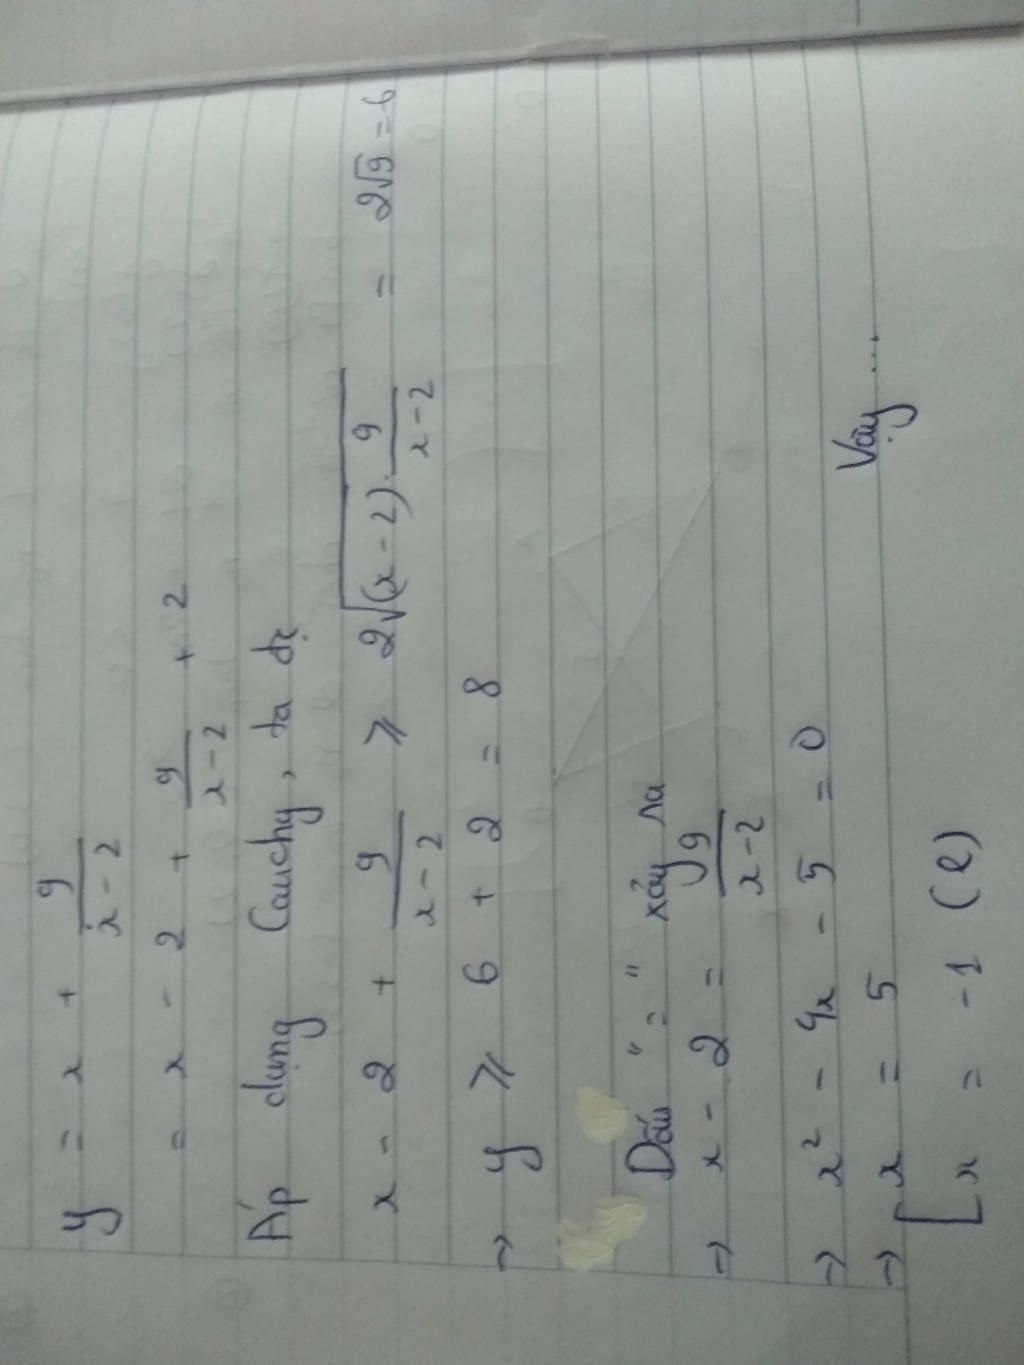 y = x + 9/(x - 2)
= x - 2 + 9/(x - 2) + 2
Áp dụng Cauchy, ta đc
x - 2 + 9/(x - 2) ⩾ 2√((x - 2).9/(x - 2)) = 2√9 = 6
→ y ⩾ 6 + 2 = 8
Dấu "=" xảy ra
→ x - 2 = 9/(x - 2)
→ x² - 4x - 5 = 0
→ [ x = 5
x = -1 (l)
Vậy ...